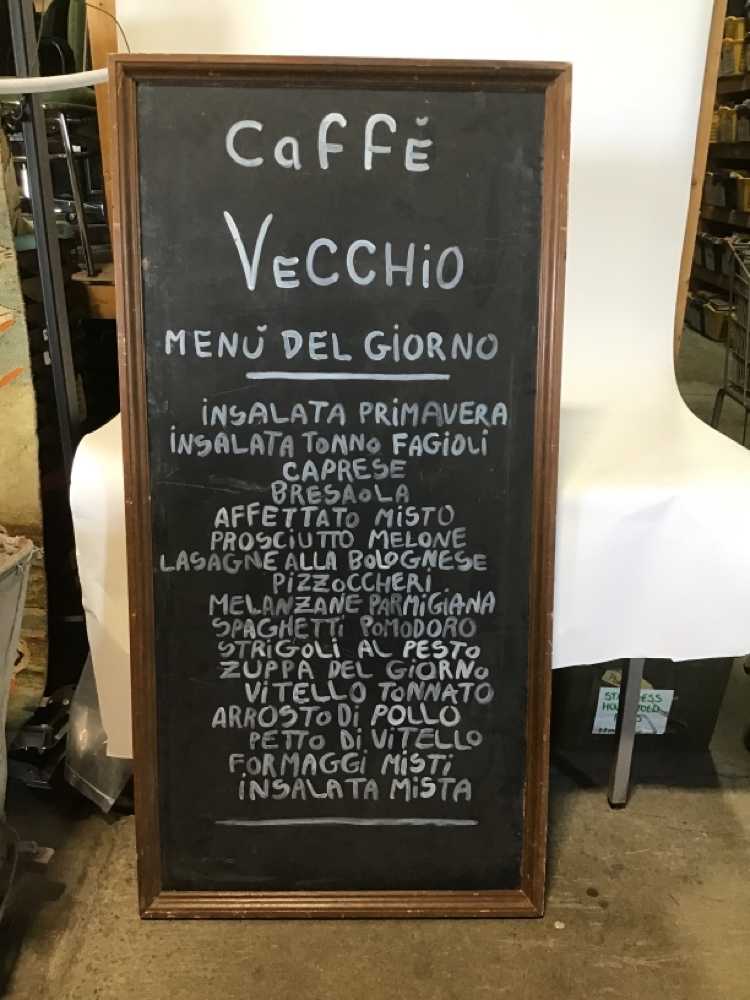 CaFFĕ
VECCHiO
MENŬ DEL GiORNO
iNSALATA PRiMAVERA
iNSALATA TONNO FAGiOLi
CAPRESE
BRESAOLA
AFFETTATO MiSTO
PROSCiUTTO MELONE
LASAGNE ALLA BOLOGNESE
PiZZOCCHERi
MELANZANE PARMiGiANA
SPAGHETTi POMODORO
STRiGOLi AL PESTO
ZUPPA DEL GiORNO
ViTELLO TONNATO
ARROSTO Di POLLO
PETTO Di ViTELLO
FORMAGGi MiSTi
iNSALATA MiSTA